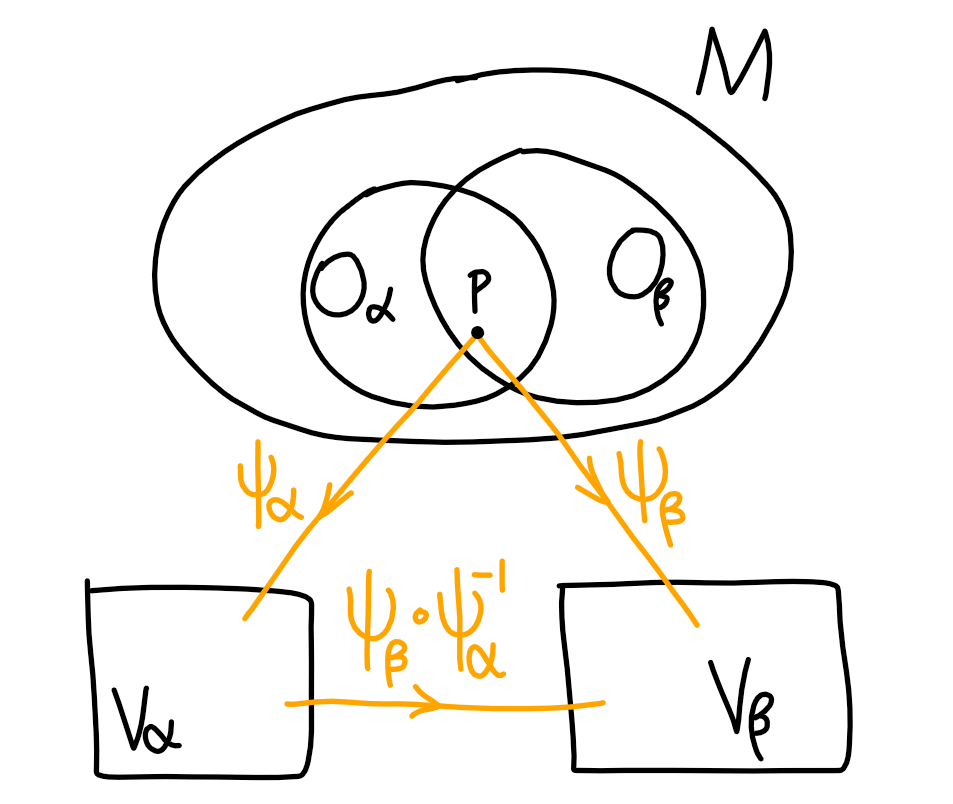 M
Oα
P
Oβ
ψα
ψβ
ψβ∘ψα⁻¹
Vα
Vβ